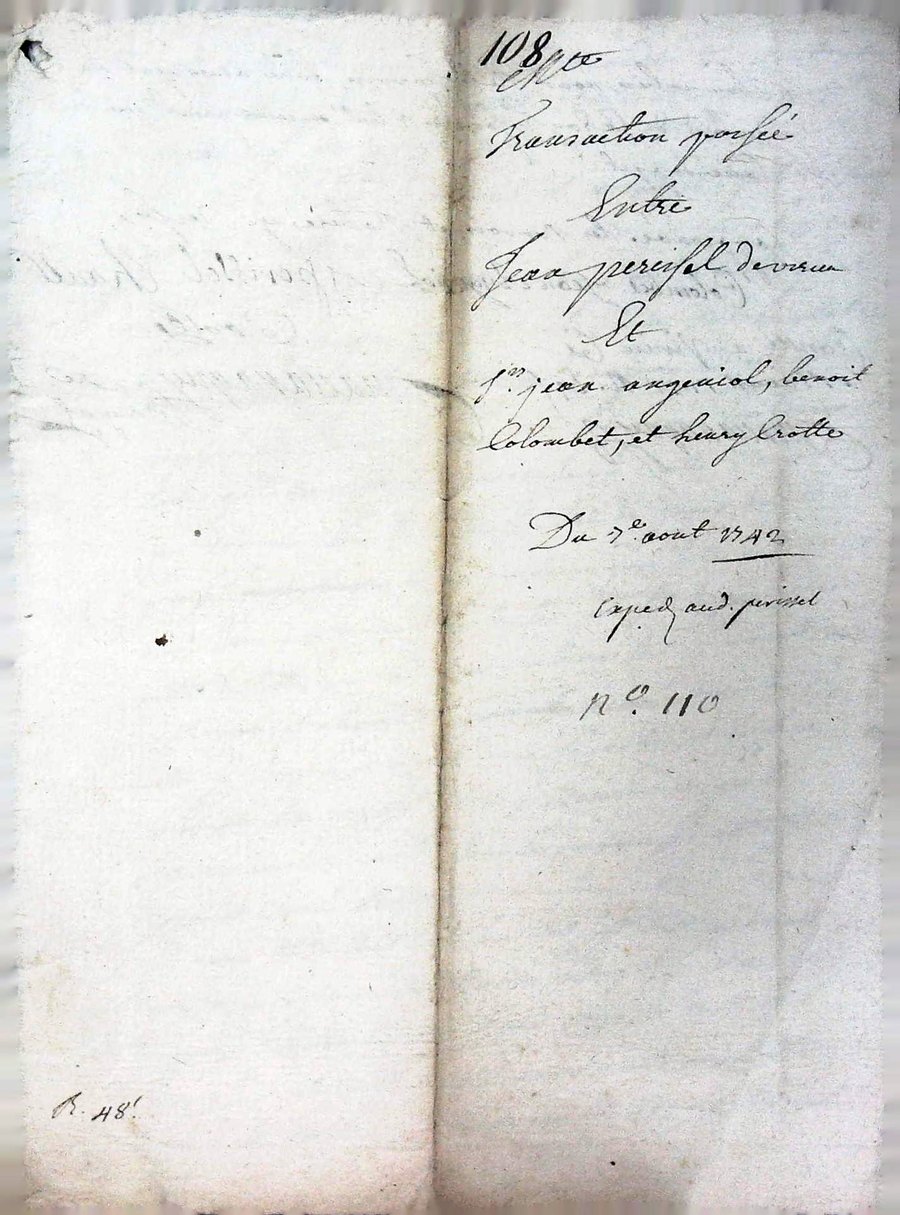 108
Transaction passée
Entre
Jean pereissel
Et
Srs jean angeniol, benoit
Colombet, et henry Crotte
Du 7e. aout 1742
Exped aud. perissel
no. 110
R. 48s